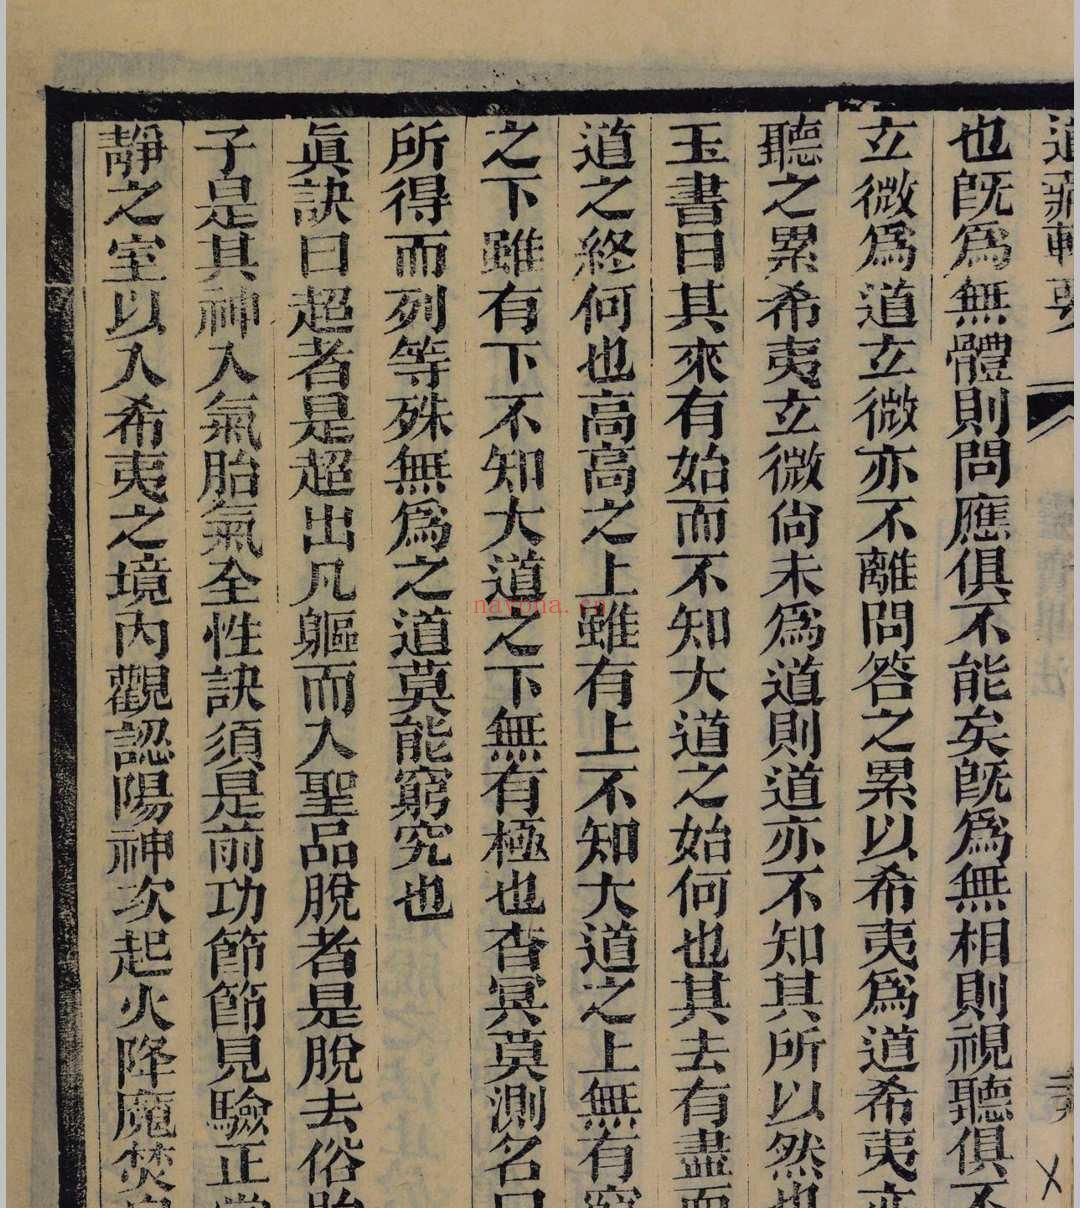 道藏輯要
也旣爲無體則問應俱不能矣旣爲無相則視聽俱不
立微爲道立微亦不離問答之累以希夷爲道希夷亦
聽之累希夷立微尙未爲道則道亦不知其所以然也
玉書曰其來有始而不知大道之始何也其去有盡而
道之終何也高高之上雖有上不知大道之上無有窮
之下雖有下不知大道之下無有極也杳冥莫測名曰
所得而列等殊無爲之道莫能窮究也
眞訣曰超者是超出凡軀而入聖品脫者是脫去俗胎
子是其神入氣胎氣全性訣須是前功節節見驗正當
靜之室以入希夷之境內觀認陽神次起火降魔焚
nayona.cn